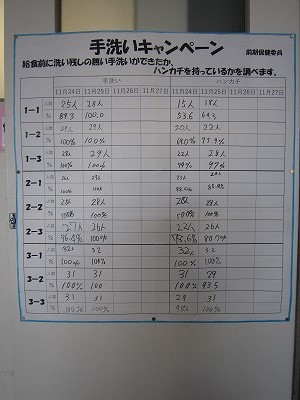 手洗いキャンペーン
前期保健委員
給食前に洗い残しの無い手洗いができたか、
ハンカチを持っているかを調べます。
手洗い ハンカチ
11月24日 11月25日 11月26日 11月27日 11月24日 11月25日 11月26日 11月27日
1-1 人数 25人 28人 15人 18人
% 89.3 100.0 53.6 64.3
1-2 人数 29人 29人 20人 22人
% 100% 100%
1-3 人数 28人 29人 22人 28人
% 100% 100%
2-1 人数
% 100% 100%
2-2 人数 28人 28人 28人 28人
% 100% 100% 100% 100%
2-3 人数 27人 26人 22人 26人
% 96.4% 100% 78.6%
3-1 人数 32人 32 32人 32
% 100% 100% 100% 100%
3-2 人数 31 31 31 29
% 100% 100 100% 93.5
3-3 人数 31 31 29 31
% 100% 100% 100%